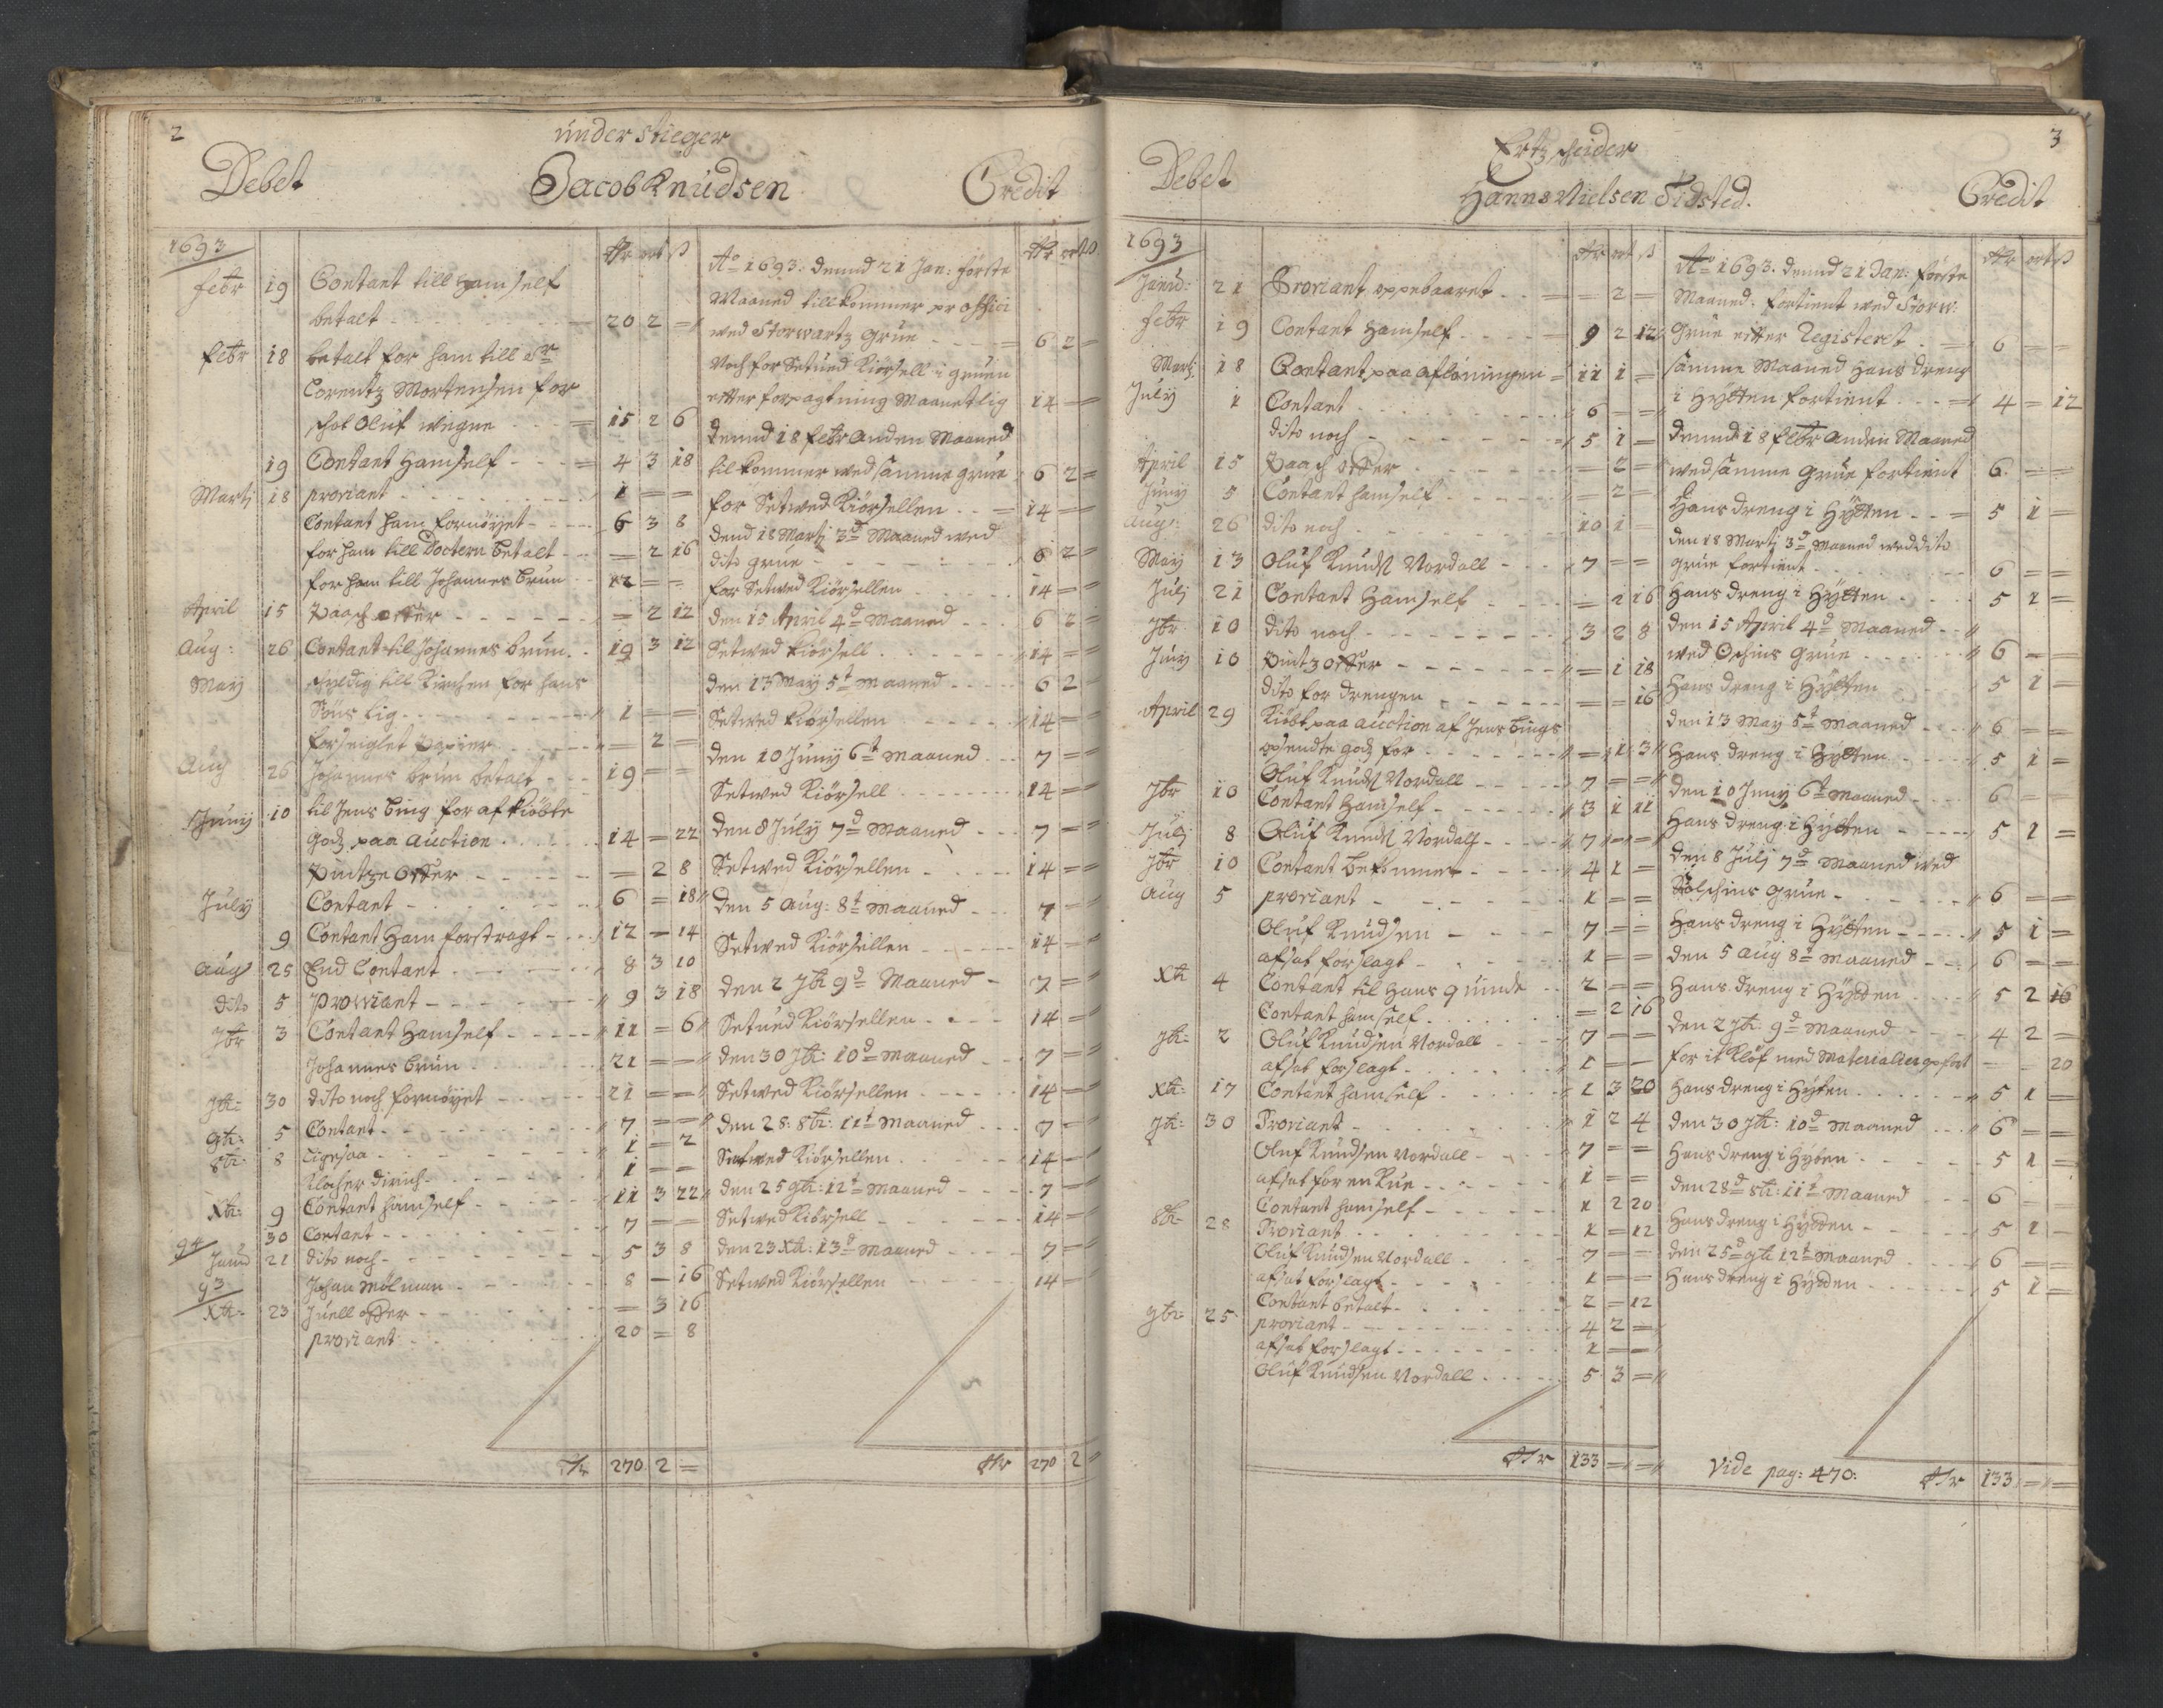 2
under Stieger
Debet Jacob Knudsen Credit
1693 Rdr ort ß
Febr 19 Contant till ham self
betalt 20 2 =
Febr 18 betalt for ham till Sr
Lorentz Mortensen for
Oluf wegne 15 2 6
19 Contant Hamself 4 3 18
Martj 18 proviant 1 = =
Contant ham fornöyet 6 3 8
for ham till Doctern betalt = 2 16
for ham till Johannes brun 12 = =
April 15 Paasch offer = 2 12
Aug: 26 Contant til Johannes brun 19 3 12
May schyldig till Kirchen for hans
Söns lig 1 = =
forseiglet Papier = 2 =
Aug 26 Johannes brun betalt 19 = =
Juny 10 til Jens bing for af kiöbte
godz paa Auction 14 = 22
Pintze Offer = 2 8
July Contant 6 = 18
9 Contant Ham forstragt 12 = 14
Aug 25 End Contant 8 3 10
dito 5 proviant 9 3 18
7br 3 Contant Hamself 11 = 6
Johannes brun 21 = =
7br: 30 dito noch fornöyet 21 = =
9br: 5 Contant 7 = =
8br: 8 1 = 2
Klocher dirich 1 = =
Xbr: 9 Contant hamself 11 3 22
30 Contant 7 = =
94 Janu 21 dito noch 5 3 8
93 Johan Mölman 8 = 16
Xbr: 23 Juell offer = 3 16
proviant 20 = 8
Rdr 270 2 =
Rdr ort ß
Ao 1693: dennd 21 Jan: förste
Maaned tillkommer pr officj
wed Storwartz Grue 6 2 =
Noch for Setwed Kiörsell i gruen
effter forpagtning Maanetlig 14 = =
dennd 18 Febr Anden Maaned
tilkommer wed samme grue 6 2 =
for Setwed Kiörsellen 14 = =
dend 18 Martj 3d Maaned wed
dito grue 6 2 =
for Setwed Kiörsellen 14 = =
den 15 April 4d Maaned 6 2 =
Setwed kiörsell 14 = =
den 13 May 5t Maaned 6 2 =
Setwed kiörsellen 14 = =
den 10 Juny 6t Maaned 7 = =
Setwed Kiörsell 14 = =
den 8 July 7d Maaned 7 = =
Setwed Kiörsellen 14 = =
den 5 Aug: 8t Maaned 7 = =
Setwed Kiörsellen 14 = =
den 2 7br 9d Maaned 7 = =
Setwed Kiörsellen 14 = =
den 30 7br: 10d Maaned 7 = =
Setwed Kiörsellen 14 = =
den 28: 8br: 11t Maaned 7 = =
Setwed Kiörsellen 14 = =
den 25 9br: 12t Maaned 7 = =
Setwed Kiörsell 14 = =
den 23 Xbr: 13d Maaned 7 = =
Setwed Kiörsellen 14 = =
Rdr 270 2 =
3
Ertzscheider
Debet Hanns Nielsen Tidsted. Credit
1693 Rdr ort ß
Janu: 21 Proviant oppebaaret = 2 =
Febr 19 Contant Hamself 9 2 12
Martj 18 Contant paa aflöningen 11 1 =
July 1 Contant 6 = =
dito noch 5 1 =
April 15 Paasch offer = 2 =
Juny 5 Contant hamself = 2 =
Aug: 26 dito noch 10 1 =
May 13 Oluf Knuds Nordall 7 = =
Julj 21 Contant Hamself = 2 16
7br 10 dito noch 3 2 8
Juny 10 Pintz Offer = 1 18
dito for drengen = = 16
April 29 Kiöbt paa Auction af Jens bings
godz for = 1 3
Oluf Knuds Nordall 7 = =
7br 10 Contant Hamself 3 1 11
Julj 8 Oluf Knuds Nordall 7 = =
7br 10 Contant bekommet 4 1 =
Aug 5 proviant 1 = =
Oluf Knudsen 7 = =
afsat forslagt 1 = =
Xbr 4 Contant til hans quinde 2 = =
Contant hamself = 2 16
7br: 2 Oluf Knudsen Nordall 7 = =
afsat forslagt 1 = =
Xbr: 17 Contant hamself 1 3 20
7br: 30 Proviant 1 2 4
Oluf Knudsen Nordall 7 = =
afsat for en Kue 1 = =
Contant hamself 1 2 20
8br: 28 Proviant 1 = 12
Oluf Knudsen Nordall 7 = =
afsat forslagt 1 = =
Contant betalt 2 = 12
9br: 25 proviant 4 2 =
afsat forslagt 1 = =
Oluf Knudsen Nordall 5 3 =
Rdr 133 = =
Rdr ort ß
Ao 1693. dennd 21 Jan: förste
Maaned: fortient wed Storw:
Grue effter Registeret 6 = =
samme Maaned Hans dreng
i Hytten fortient 4 = 12
dennd 18 Febr Anden Maaned
wed samme Grue fortient 6 = =
Hans dreng i Hytten 5 1 =
den 18 Martj 3d Maaned wed dito
grue fortient 6 = =
Hans dreng i Hytten 5 1 =
den 15 April 4d Maaned
wed Grue 6 = =
Hans dreng i Hytten 5 1 =
den 13 May 5t Maaned 6 = =
Hans dreng i Hytten 5 1 =
den 10 Juny 6t Maaned 6 = =
Hans dreng i Hytten 5 1 =
den 8 Julj 7d Maaned wed
Grue 6 = =
Hans dreng i Hytten 5 1 =
den 5 Aug 8t Maaned 6 = =
Hans dreng i Hydden 5 2 16
den 2 7br: 9d Maaned 4 2 =
for it Klöf med Materialier opfört = = 20
Hans dreng i Hyten 5 1 =
den 30 7br: 10d Maaned 6 = =
Hans dreng i Hyten 5 1 =
den 28d 8br: 11t Maaned 6 = =
Hans dreng i Hydden 5 1 =
den 25d 9br 12t Maaned 6 = =
Hans dreng i Hydden 5 1 =
Vide pag: 470: Rdr 133 = =